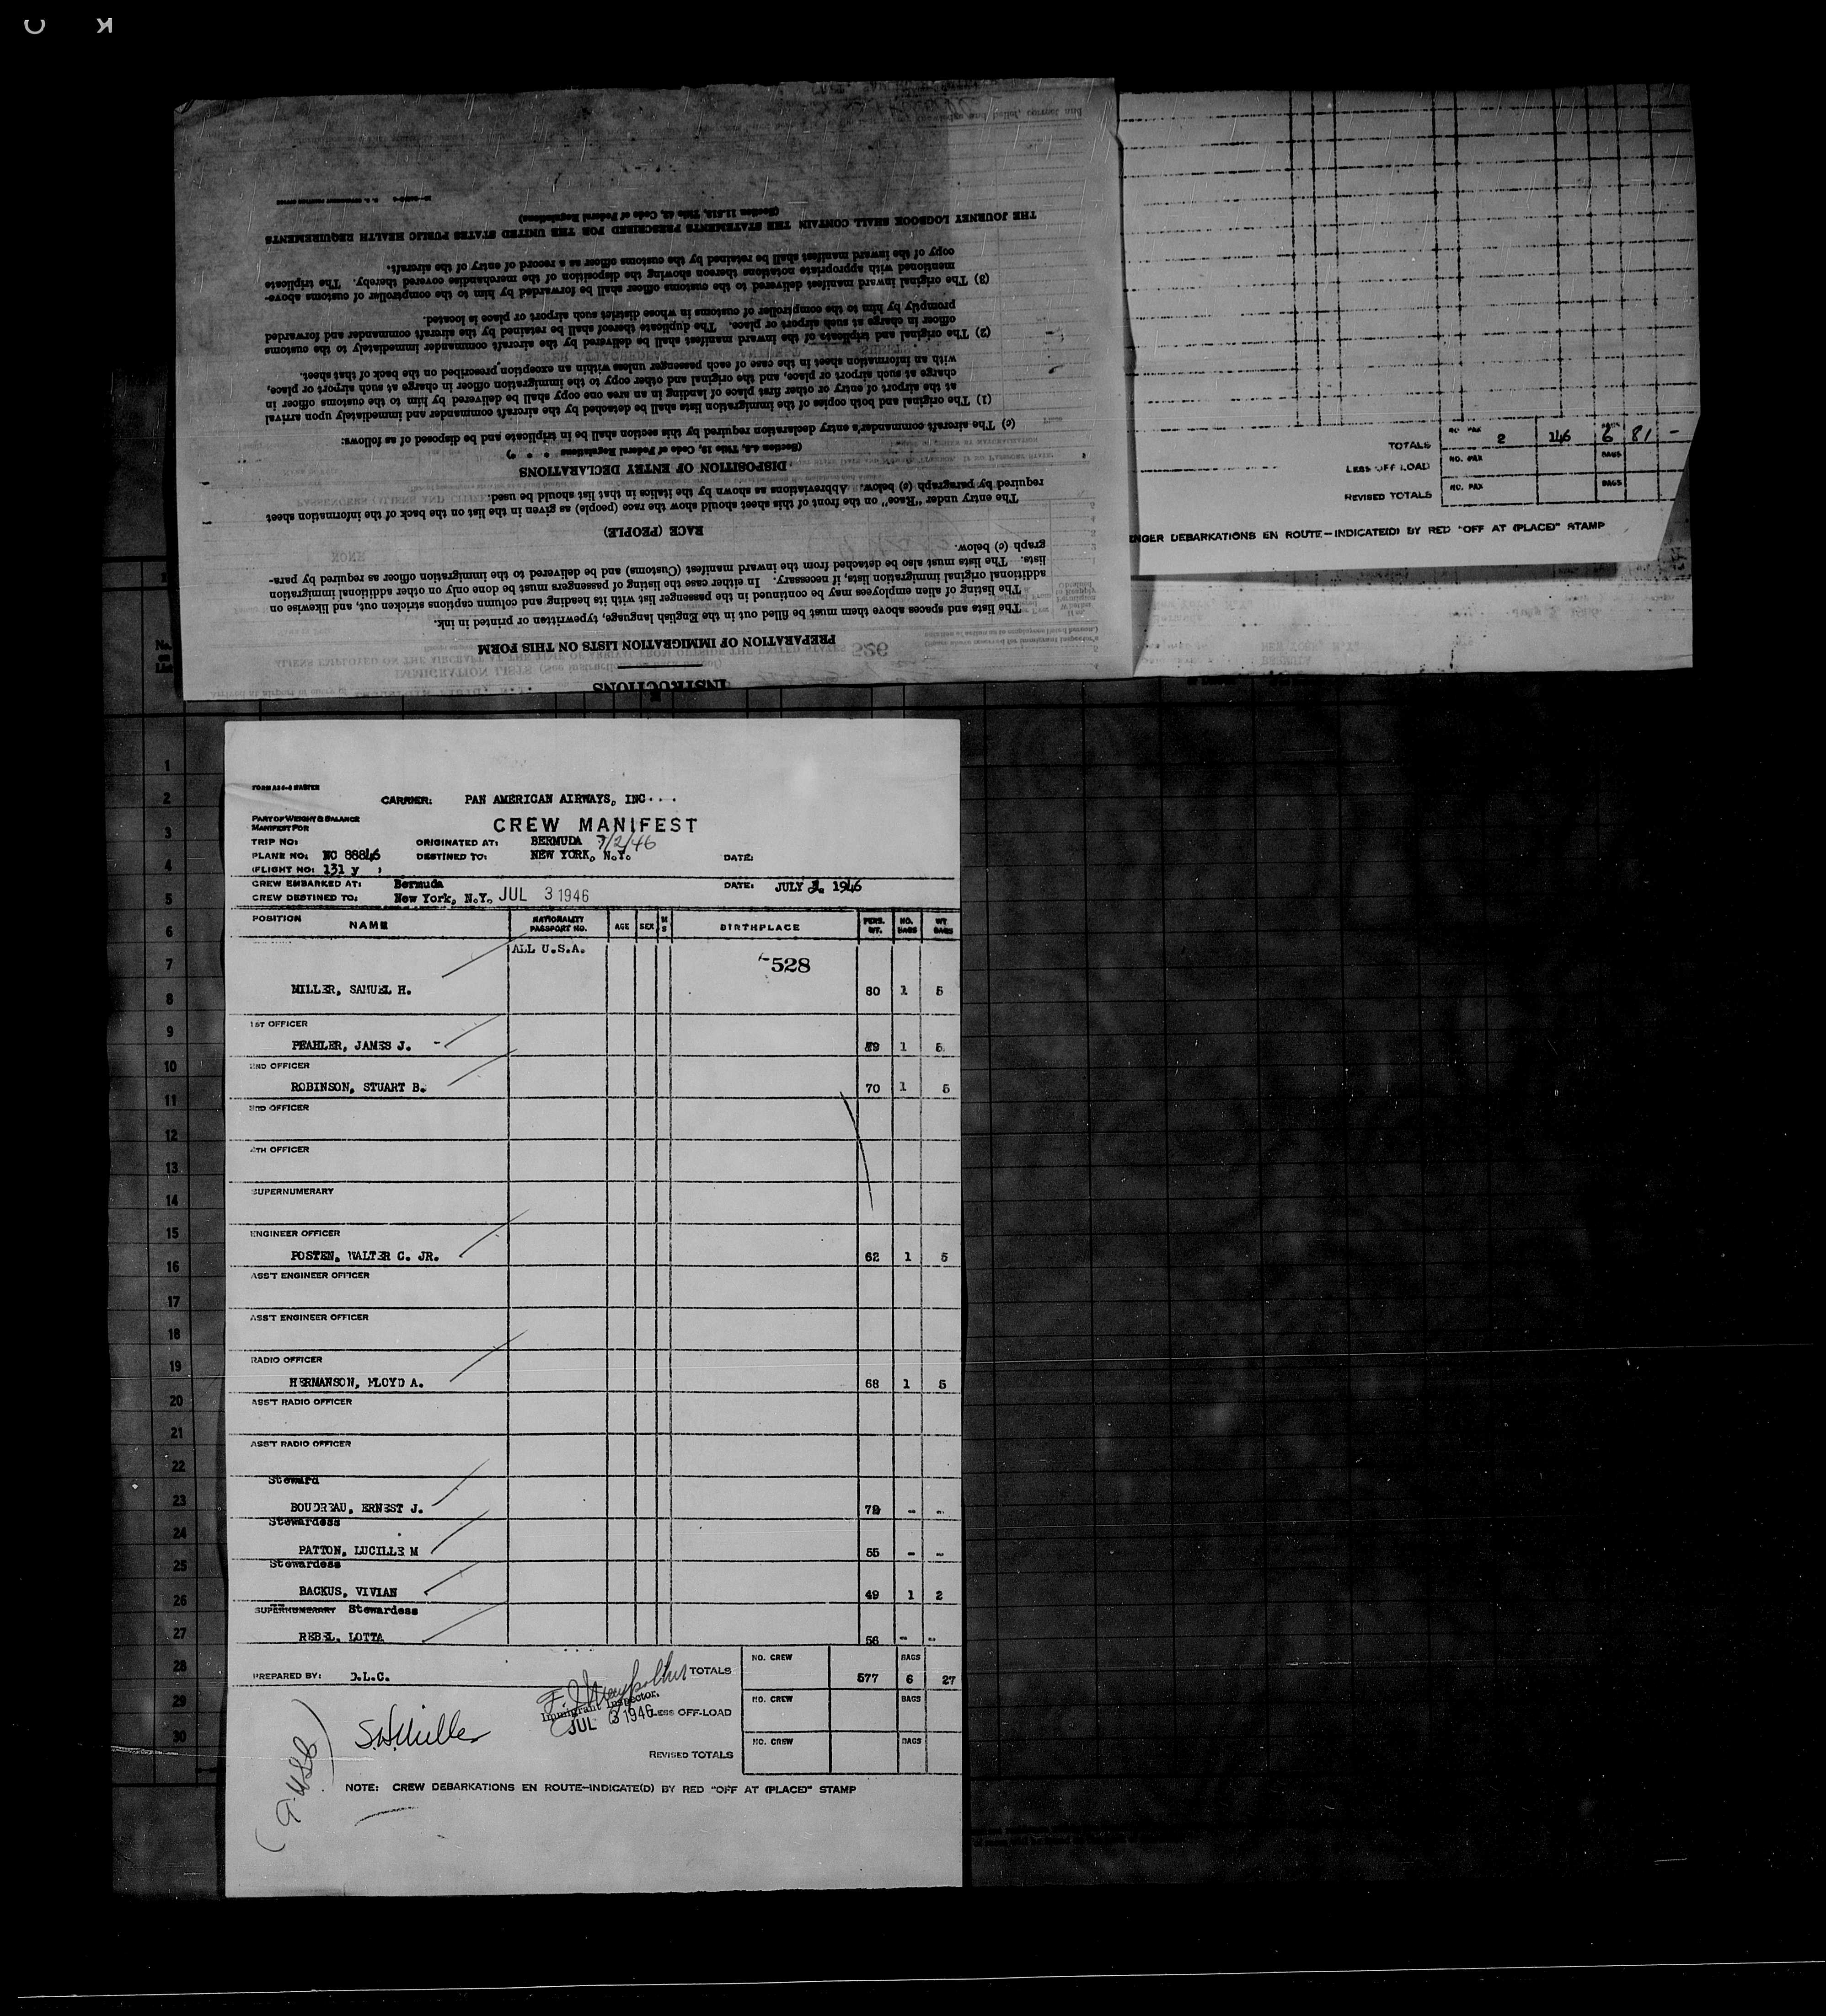 INSTRUCTIONS
PREPARATION OF IMMIGRATION LISTS ON THIS FORM
The lists and spaces above them must be filled out in the English language, typewritten or printed in ink.
The listing of alien employees may be continued in the passenger list with its heading and column captions stricken out, and likewise on
additional original immigration lists, if necessary. In either case the listing of passengers must be done only on other additional immigration
lists. The lists must also be detached from the inward manifest (Customs) and be delivered to the immigration officer as required by para-
graph (c) below.
RACE (PEOPLE)
The entry under "Race" on the front of this sheet should show the race (people) as given in the list on the back of the information sheet
required by paragraph (c) below. Abbreviations as shown by the italics in that list should be used.
DISPOSITION OF ENTRY DECLARATIONS
(Section 4.6, Title 19, Code of Federal Regulations * * *)
(c) The aircraft commander's entry declaration required by this section shall be in triplicate and be disposed of as follows:
(1) The original and both copies of the immigration lists shall be detached by the aircraft commander and immediately upon arrival
at the airport of entry or other first place of landing in an area one copy shall be delivered by him to the customs officer in
charge at such airport or place, and the original and other copy to the immigration officer in charge at such airport or place,
with an information sheet in the case of each passenger unless within an exception prescribed on the back of that sheet.
(2) The original and triplicate of the inward manifest shall be delivered by the aircraft commander immediately to the customs
officer in charge at such airport or place. The duplicate thereof shall be retained by the aircraft commander and forwarded
promptly by him to the comptroller of customs in whose district such airport or place is located.
(3) The original inward manifest delivered to the customs officer shall be forwarded by him to the comptroller of customs above-
mentioned with appropriate notations thereon showing the disposition of the merchandise covered thereby. The triplicate
copy of the inward manifest shall be retained by the customs officer as a record of entry of the aircraft.
THE JOURNEY LOGBOOK SHALL CONTAIN THE STATEMENTS PRESCRIBED FOR THE UNITED STATES PUBLIC HEALTH REQUIREMENTS
(Section 11.513, Title 42, Code of Federal Regulations)
526
TOTALS NO. PAX 2 146 BAGS 6 81 -
LESS OFF LOAD NO. PAX BAGS
REVISED TOTALS NO. PAX BAGS
ENGER DEBARKATIONS EN ROUTE—INDICATE(D) BY RED "OFF AT (PLACE)" STAMP
No. on List
1
2
3
4
5
6
7
8
9
10
11
12
13
14
15
16
17
18
19
20
21
22
23
24
25
26
27
28
29
30
CARRIER: PAN AMERICAN AIRWAYS, INC...
PART OF WEIGHT & BALANCE
MANIFEST FOR
CREW MANIFEST
TRIP NO: ORIGINATED AT: BERMUDA 7/2/46
PLANE NO: NC 88846 DESTINED TO: NEW YORK, N.Y. DATE:
(FLIGHT NO: 131 y )
CREW EMBARKED AT: Bermuda DATE: JULY 3, 1946
CREW DESTINED TO: New York, N.Y. JUL 3 1946
POSITION NAME NATIONALITY PASSPORT NO. AGE SEX M S BIRTHPLACE PERS. WT. NO. BAGS WT. BAGS
ALL U.S.A.
528
MILLER, SAMUEL H. 80 1 5
1ST OFFICER
PFAHLER, JAMES J. 1 5
2ND OFFICER
ROBINSON, STUART B. 70 1 5
3RD OFFICER
4TH OFFICER
SUPERNUMERARY
ENGINEER OFFICER
POSTEN, WALTER C. JR. 62 1 5
ASS'T ENGINEER OFFICER
ASS'T ENGINEER OFFICER
RADIO OFFICER
HERMANSON, FLOYD A. 68 1 5
ASS'T RADIO OFFICER
ASS'T RADIO OFFICER
Steward
BOUDREAU, ERNEST J. - -
Stewardess
PATTON, LUCILLE M 55 - -
Stewardess
BACKUS, VIVIAN 49 1 2
SUPERNUMERARY Stewardess
REBEL, LOTTA 56 - -
PREPARED BY: D.L.C. TOTALS NO. CREW 577 BAGS 6 27
Immigrant Inspector.
JUL 3 1946
LESS OFF-LOAD NO. CREW BAGS
S.H. Miller
REVISED TOTALS NO. CREW BAGS
NOTE: CREW DEBARKATIONS EN ROUTE—INDICATE(D) BY RED "OFF AT (PLACE)" STAMP